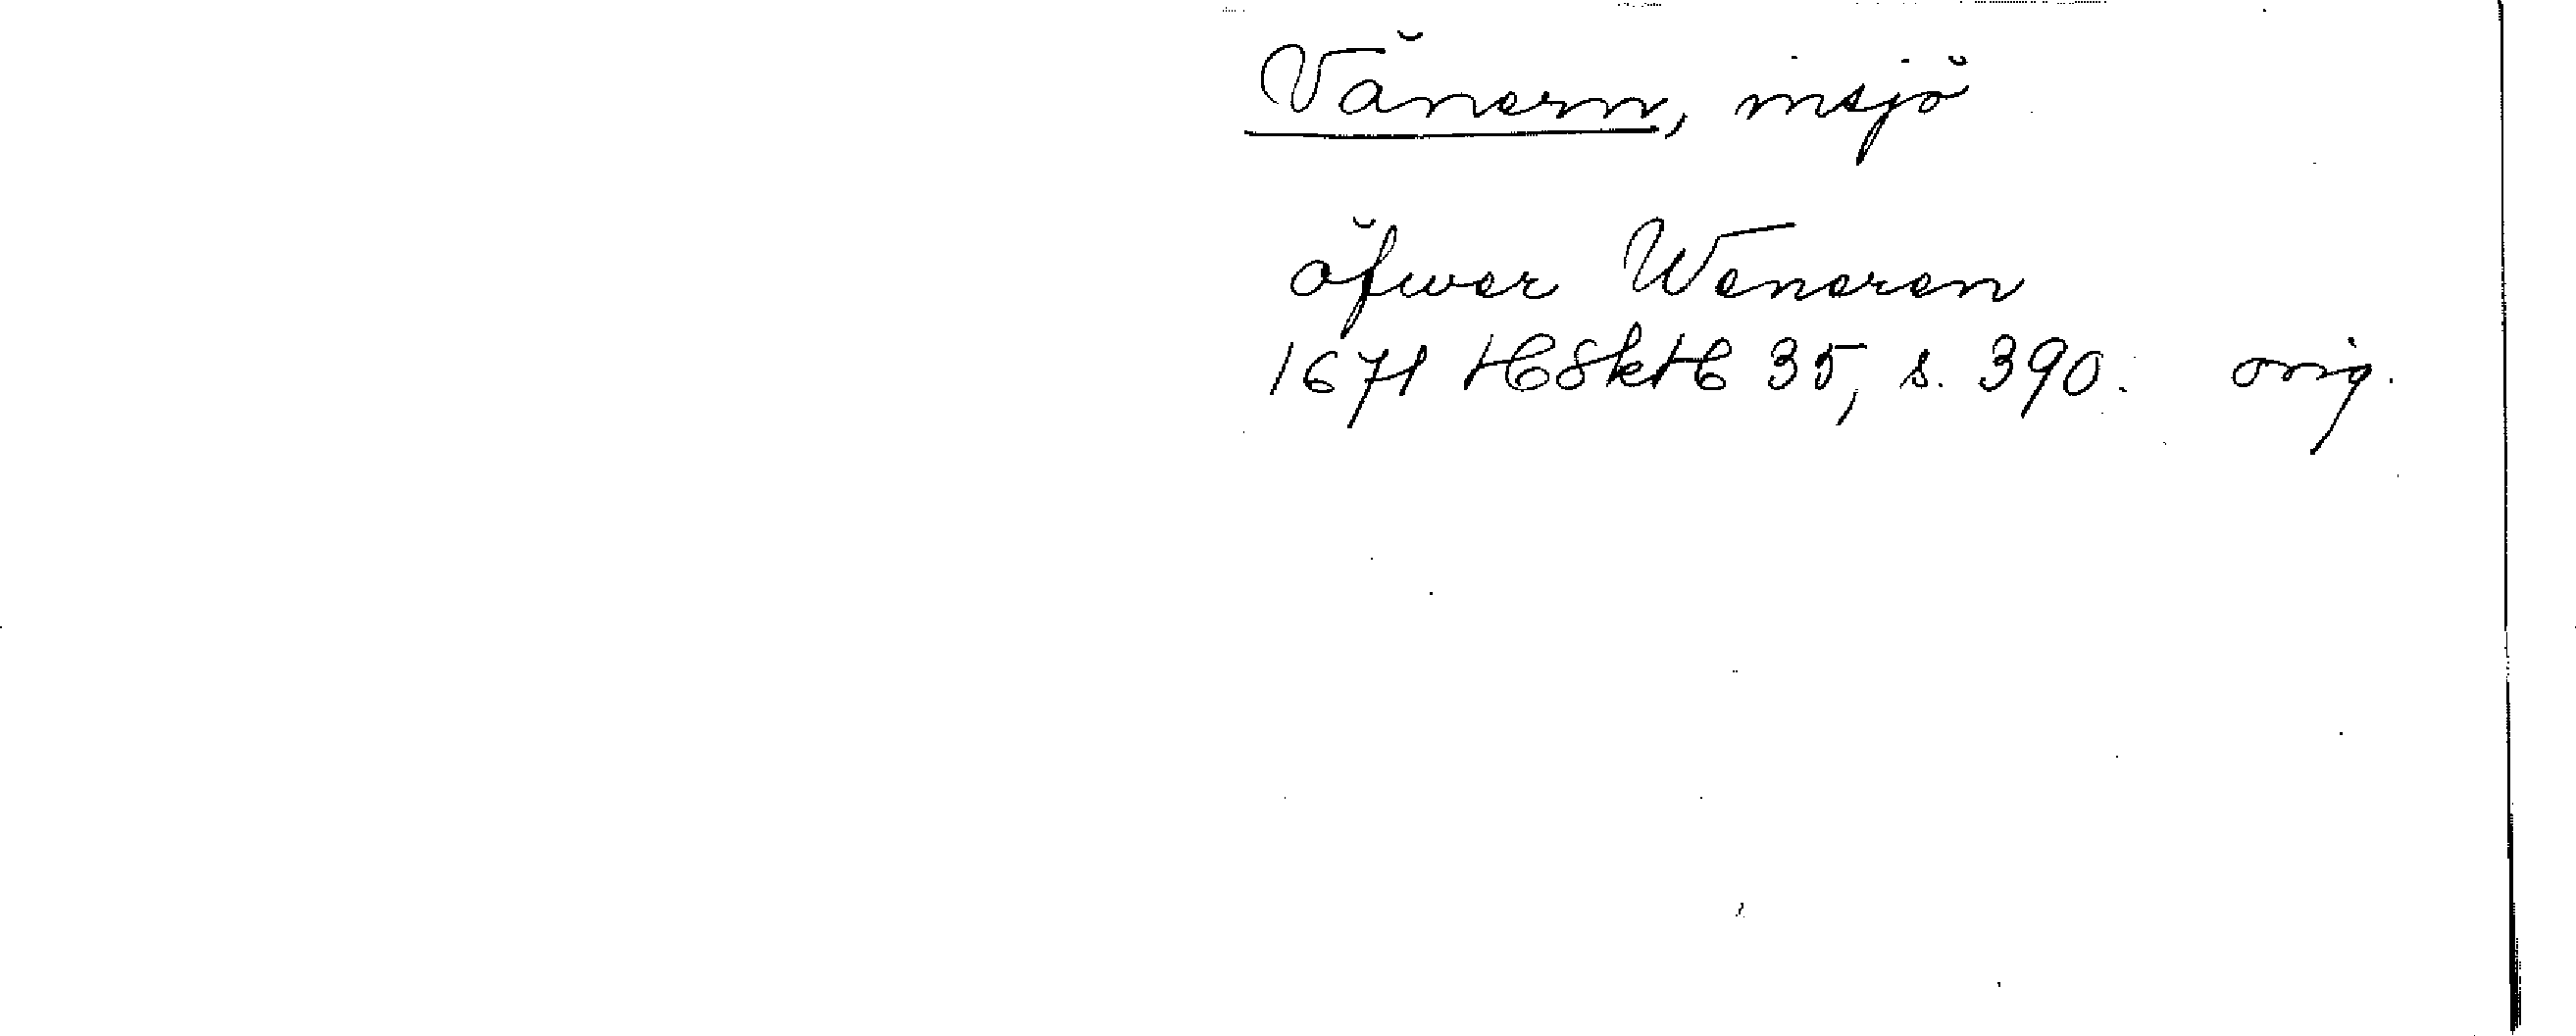 Vänern, insjö
öfwer Weneren
1671 HSkH 35, s. 390. orig.